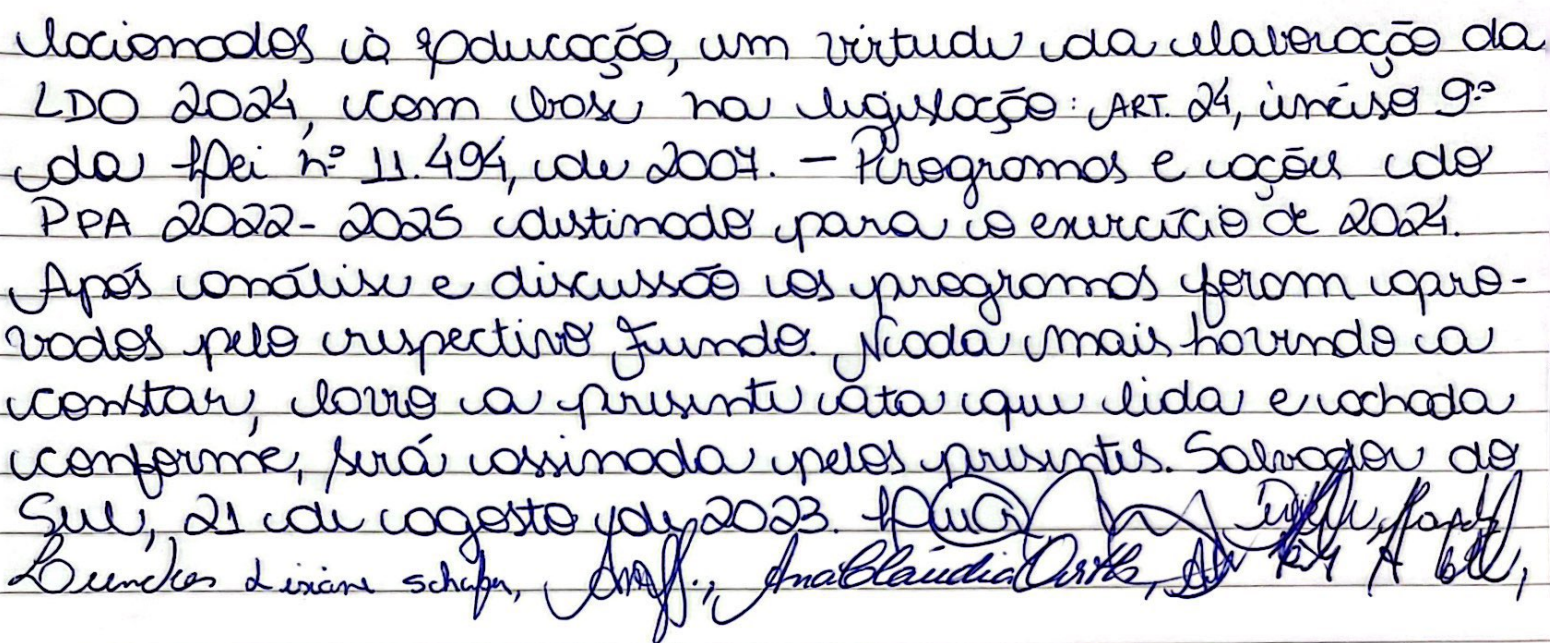 lacionados à Educação, em virtude da elaboração da
LDO 2024, com base na legislação: ART. 24, inciso 9º
da Lei nº 11.494, de 2007. — Programas e ações do
PPA 2022-2025 destinado para o exercício de 2024.
Após análise e discussão os programas foram apro-
vados pelo respectivo Fundo. Nada mais havendo a
constar, lavro a presente ata que lida e achada
conforme, será assinada pelos presentes. Salvador do
Sul, 21 de agosto de 2023.
Lixiane Schafer, Ana Claudia